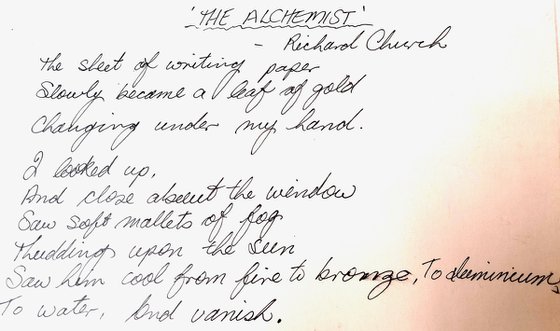 'THE ALCHEMIST'
- Richard Church
The sheet of writing paper
Slowly became a leaf of gold
Changing under my hand.
I looked up,
And close about the window
Saw soft mallets of fog
Thudding upon the sun
Saw him cool from fire to bronze, To aluminium,
To water, And vanish.